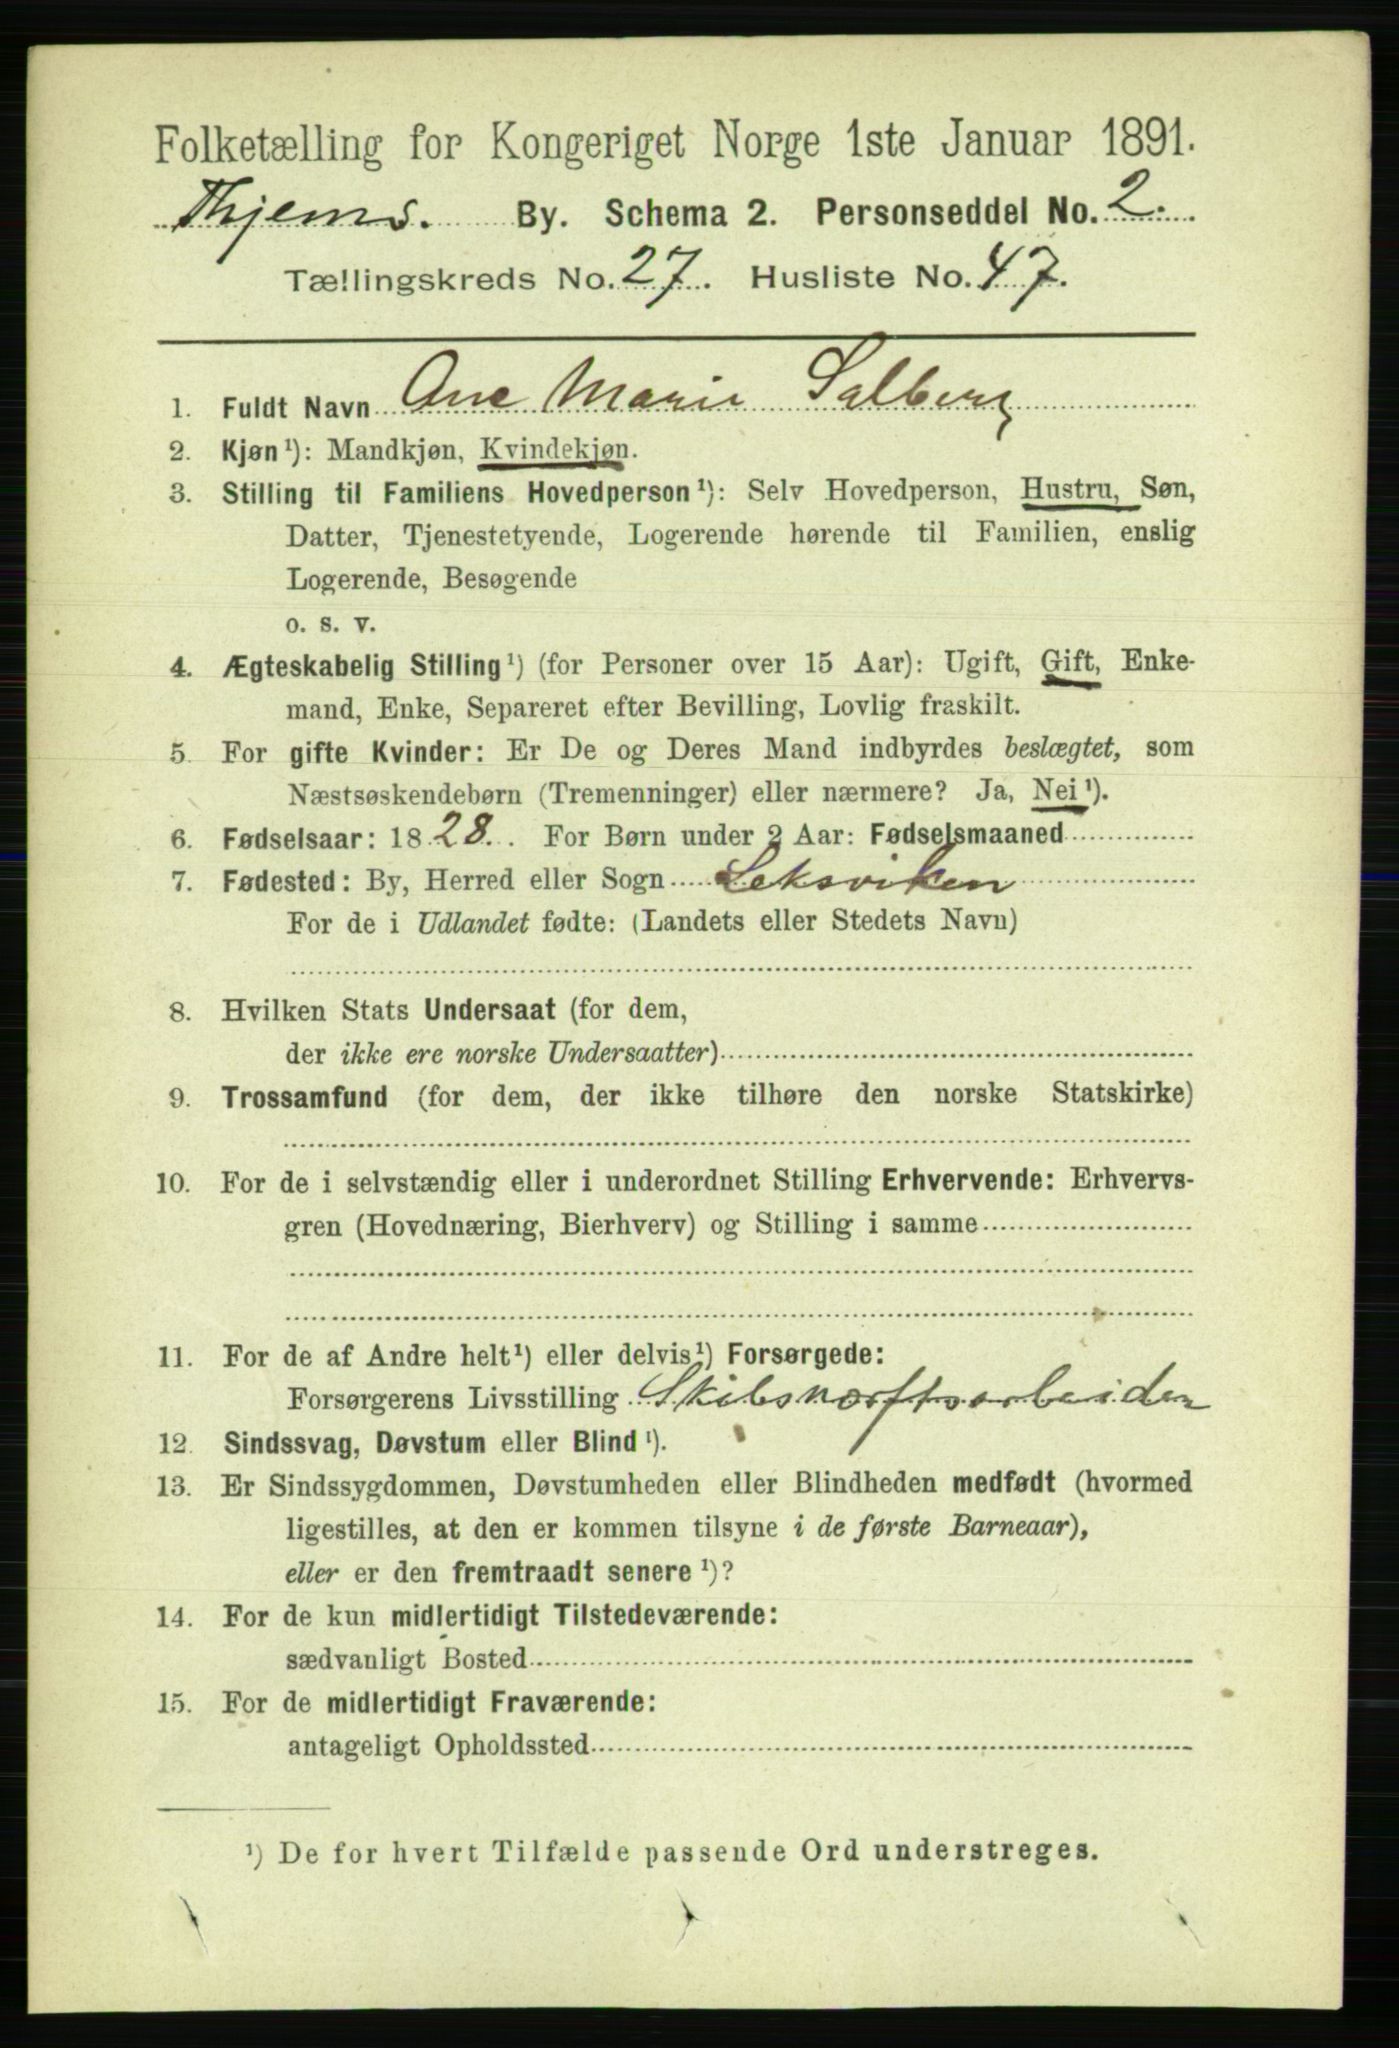 Folketælling for Kongeriget Norge 1ste Januar 1891.
Thjems. By. Schema 2. Personseddel No. 2.
Tællingskreds No. 27. Husliste No. 47.
1. Fuldt Navn Ane Marie Salberg
2. Kjøn¹): Mandkjøn, Kvindekjøn.
3. Stilling til Familiens Hovedperson¹): Selv Hovedperson, Hustru, Søn,
Datter, Tjenestetyende, Logerende hørende til Familien, enslig
Logerende, Besøgende
o. s. v.
4. Ægteskabelig Stilling¹) (for Personer over 15 Aar): Ugift, Gift, Enke-
mand, Enke, Separeret efter Bevilling, Lovlig fraskilt.
5. For gifte Kvinder: Er De og Deres Mand indbyrdes beslægtet, som
Næstsøskendebørn (Tremenninger) eller nærmere? Ja, Nei¹).
6. Fødselsaar: 1828. For Børn under 2 Aar: Fødselsmaaned
7. Fødested: By, Herred eller Sogn Leksviken
For de i Udlandet fødte: (Landets eller Stedets Navn)
8. Hvilken Stats Undersaat (for dem,
der ikke ere norske Undersaatter)
9. Trossamfund (for dem, der ikke tilhøre den norske Statskirke)
10. For de i selvstændig eller i underordnet Stilling Erhvervende: Erhvervs-
gren (Hovednæring, Bierhverv) og Stilling i samme
11. For de af Andre helt¹) eller delvis¹) Forsørgede:
Forsørgerens Livsstilling Skibsværftsarbeider
12. Sindssvag, Døvstum eller Blind¹).
13. Er Sindssygdommen, Døvstumheden eller Blindheden medfødt (hvormed
ligestilles, at den er kommen tilsyne i de første Barneaar),
eller er den fremtraadt senere¹)?
14. For de kun midlertidigt Tilstedeværende:
sædvanligt Bosted
15. For de midlertidigt Fraværende:
antageligt Opholdssted
¹) De for hvert Tilfælde passende Ord understreges.